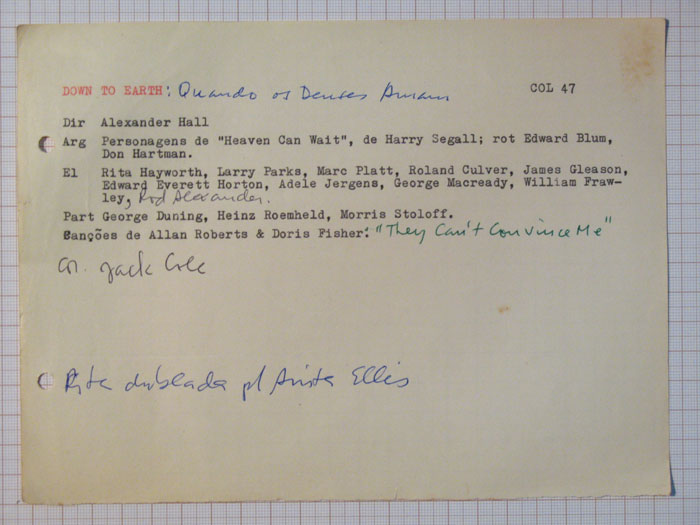 DOWN TO EARTH: Quando os Deuses Amam COL 47
Dir Alexander Hall
Arg Personagens de "Heaven Can Wait", de Harry Segall; rot Edward Blum,
Don Hartman.
El Rita Hayworth, Larry Parks, Marc Platt, Roland Culver, James Gleason,
Edward Everett Horton, Adele Jergens, George Macready, William Fraw-
ley, Rod Alexander.
Part George Duning, Heinz Roemheld, Morris Stoloff.
Canções de Allan Roberts & Doris Fisher: "They Can't Convince Me"
Co. Jack Cole
Rita dublada p/ Anita Ellis